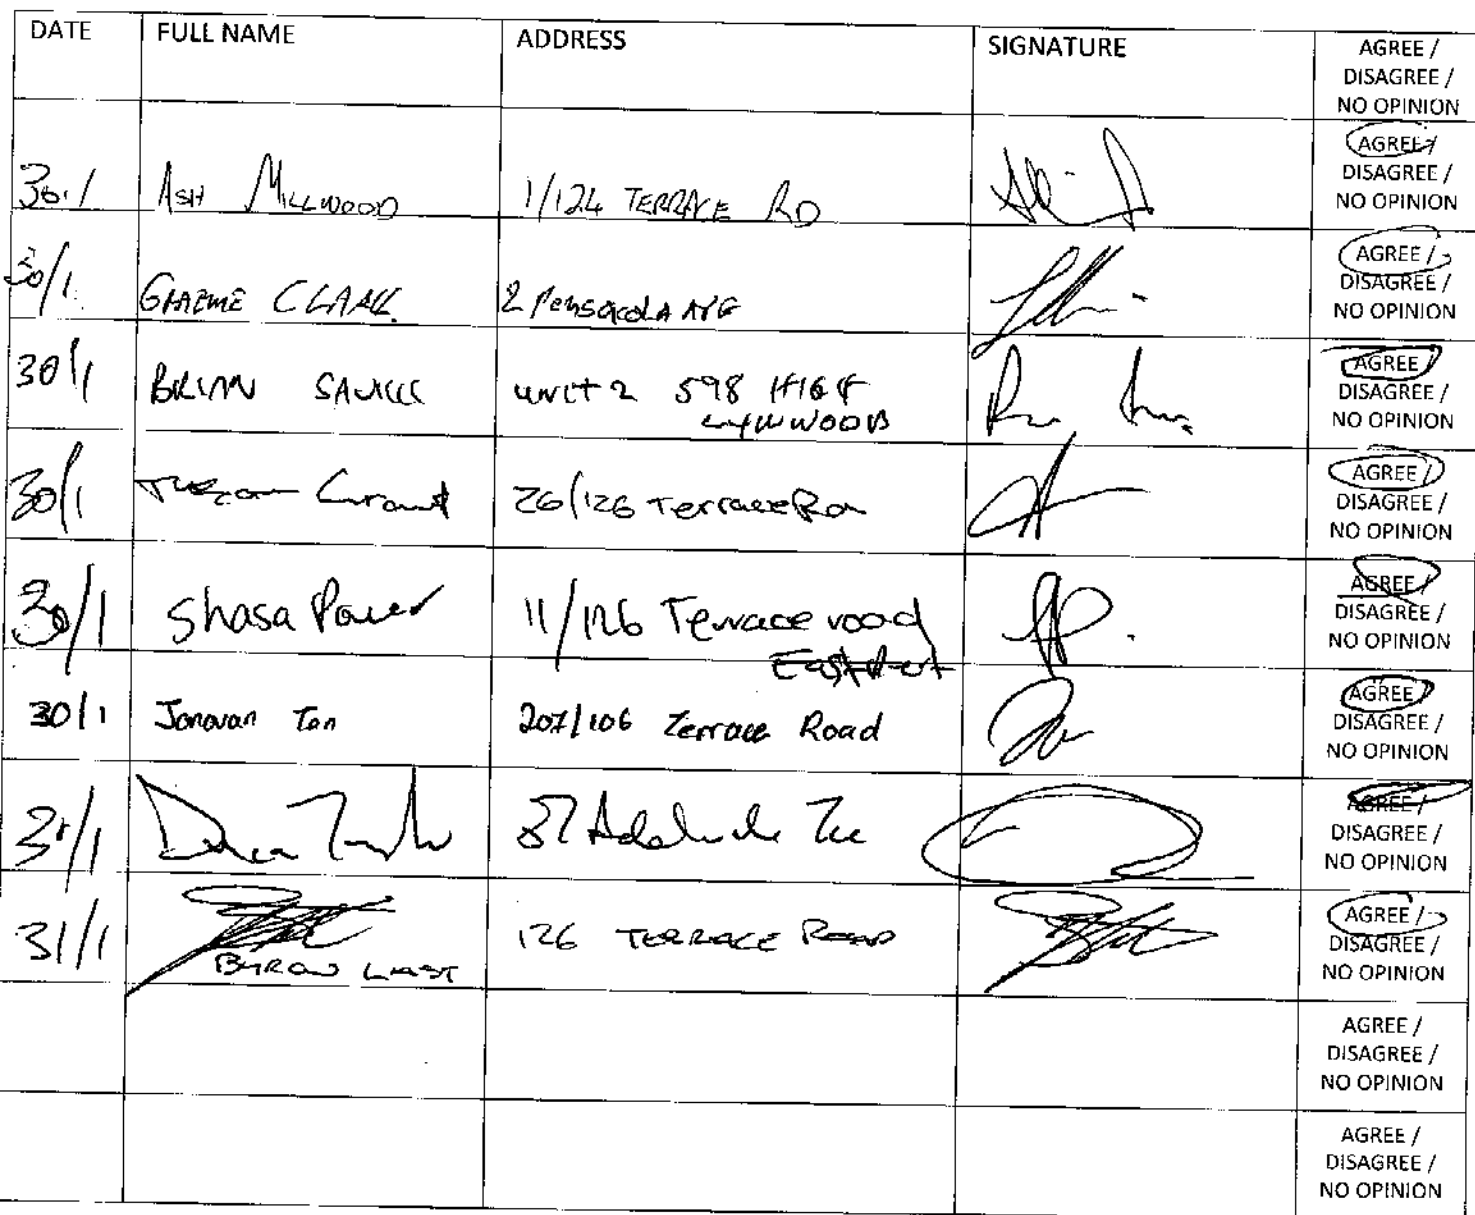 DATE FULL NAME ADDRESS SIGNATURE AGREE /
DISAGREE /
NO OPINION
30/1 ASH MILLWOOD 1/124 TERRACE RD AGREE /
DISAGREE /
NO OPINION
30/1 GRAEME CLARK 2 Pensacola AVE AGREE /
DISAGREE /
NO OPINION
30/1 BRIAN unit 2 598 HIGH AGREE /
LYNWOOD DISAGREE /
NO OPINION
30/1 Grant 26/126 Terrace AGREE /
DISAGREE /
NO OPINION
30/1 Shasa Power 11/126 Terrace road AGREE /
East DISAGREE /
NO OPINION
30/1 Jonovan Tan 207/106 Terrace Road AGREE /
DISAGREE /
NO OPINION
37 Adelaide Tce AGREE /
DISAGREE /
NO OPINION
31/1 BYRON LAST 126 TERRACE ROAD AGREE /
DISAGREE /
NO OPINION
AGREE /
DISAGREE /
NO OPINION
AGREE /
DISAGREE /
NO OPINION